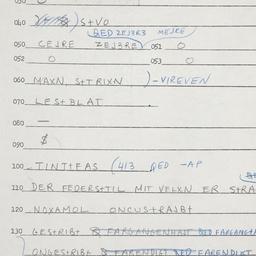 040 S+VO
BED ZEJƎRƎ MEJRE
050 CEJRE ZEJƎRE 051 O
052 O 053 O
060 MAXN, S++RIXN )-VIREVEN
070 LES+BLAT
080 —
090 $
100 TINT+FAS (413 BED -AP
110 DER FEDERS+TIL MIT VELXN ER S+RA
120 NOXAMOL ONCUS+RAJB+
130 GES+RIB+ & FARGANGENHAJT BED FARGANG
ONGES+RIB+ & FARENDIGT BED FARENDIKT